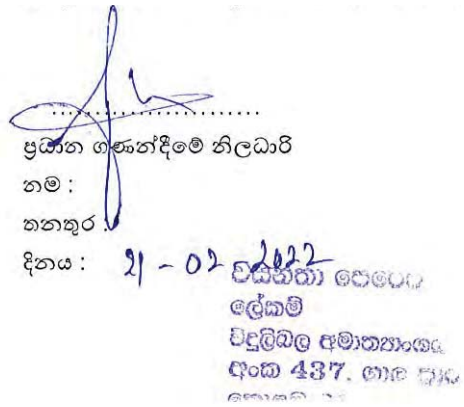 ප්‍රධාන ගණන්දීමේ නිලධාරි
නම :
තනතුර :
දිනය : 21 - 02 2022
වසන්තා පෙරේරා
ලේකම්
විදුලිබල අමාත්‍යාංශය
අංක 437, ගාලු පාර